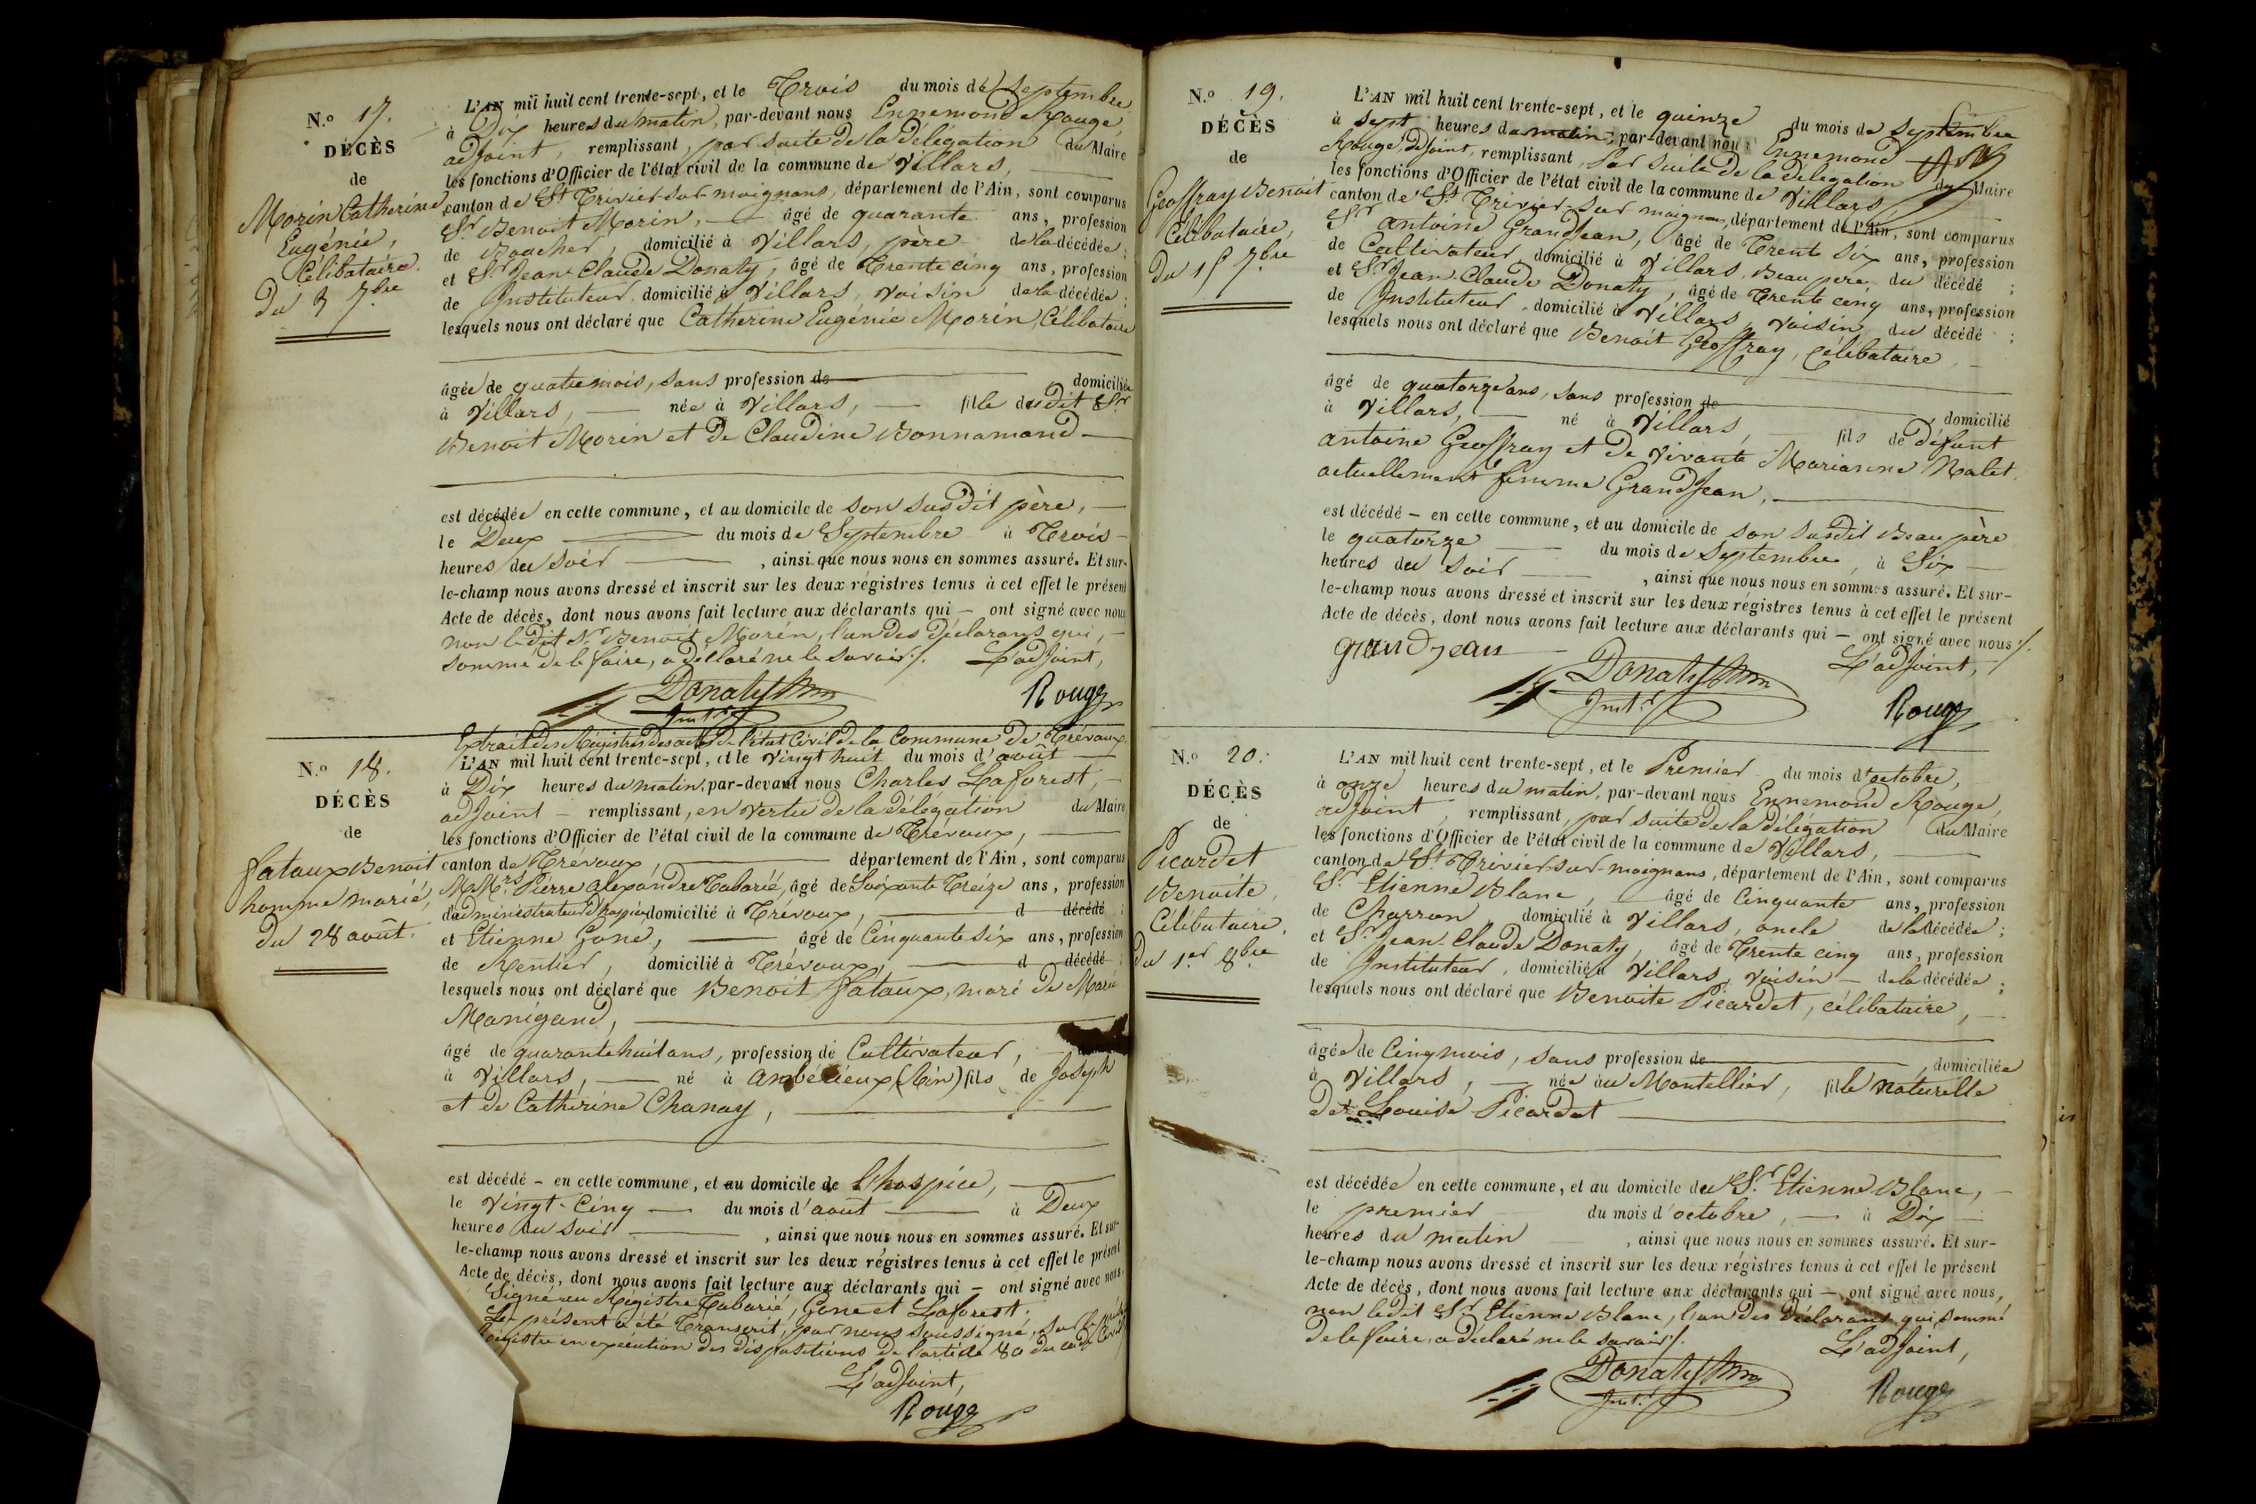 N.o 17.
DÉCÈS
de
Morin Catherine
Eugénie,
Célibataire.
Du 3 7.bre
L'AN mil huit cent trente-sept, et le Trois du mois de Septembre
à Dix heures du matin, par-devant nous Ennemond Rouge,
adjoint, remplissant, par suite de la délégation du Maire
les fonctions d'Officier de l'état civil de la commune de Villars,
canton de St. Trivier-sur-moignans, département de l'Ain, sont comparus
Sr. Benoit Morin, âgé de quarante ans, profession
de Boucher, domicilié à Villars, père de la décédée;
et Sr. Jean-Claude Donaty, âgé de Trente cinq ans, profession
de Instituteur, domicilié à Villars, voisin de la décédée;
lesquels nous ont déclaré que Catherine Eugénie Morin, Célibataire
âgée de quatre mois, sans profession de domiciliée
à Villars, née à Villars, fille dudit Sr.
Benoit Morin et de Claudine Bonnamand
est décédée en cette commune, et au domicile de son susdit père,
le Deux du mois de Septembre à Trois
heures du soir, ainsi que nous nous en sommes assuré. Et sur-
le-champ nous avons dressé et inscrit sur les deux régistres tenus à cet effet le présent
Acte de décès, dont nous avons fait lecture aux déclarants qui — ont signé avec nous
non ledit Sr. Benoit Morin, l'un des déclarans qui,
sommé de le faire, a déclaré ne le savoir./. L'adjoint,
Donaty Rouge
Instr.
N.o 18.
DÉCÈS
de
fataux Benoit
homme marié,
du 28 août.
Extrait des Régistres des actes de l'état Civil de la Commune de Trévoux.
L'AN mil huit cent trente-sept, et le vingt huit du mois d'août
à Dix heures du matin, par-devant nous Charles Laforest,
adjoint — remplissant, en vertu de la délégation du Maire
les fonctions d'Officier de l'état civil de la commune de Trévoux,
canton de Trévoux, département de l'Ain, sont comparus
MM.rs Pierre alexandre Tabarié, âgé de Soixante Treize ans, profession
d'administrateur d'hospice domicilié à Trévoux, d décédé;
et Etienne Gone, âgé de Cinquante six ans, profession
de Rentier, domicilié à Trévoux, d décédé;
lesquels nous ont déclaré que Benoit fataux, mari de Marie
Manigand,
âgé de quarante huit ans, profession de Cultivateur,
à Villars, né à ambérieux (Ain) fils de Joseph
et de Catherine Chanay,
est décédé — en cette commune, et au domicile de l'hospice,
le vingt-cinq du mois d'août à Deux
heures du soir, ainsi que nous nous en sommes assuré. Et sur-
le-champ nous avons dressé et inscrit sur les deux régistres tenus à cet effet le présent
Acte de décès, dont nous avons fait lecture aux déclarants qui — ont signé avec nous.
Signé au Régistre Tabarié, Gone et Laforest.
Le présent a été Transcrit, par nous soussigné, sur le
en exécution des dispositions de l'article 80 du code Civil
L'adjoint,
Rouge
N.o 19.
DÉCÈS
de
Geoffray Benoit
Célibataire,
Du 15 7.bre
L'AN mil huit cent trente-sept, et le quinze du mois de septembre
à sept heures du matin, par-devant nous Ennemond
Rouge, adjoint, remplissant, par suite de la délégation du Maire
les fonctions d'Officier de l'état civil de la commune de Villars,
canton de St. Trivier-sur moignans, département de l'Ain, sont comparus
Sr. antoine Grandjean, âgé de Trente six ans, profession
de Cultivateur, domicilié à Villars, Beau père du décédé;
et Sr. Jean-Claude Donaty, âgé de Trente cinq ans, profession
de Instituteur, domicilié à Villars, voisin du décédé;
lesquels nous ont déclaré que Benoit Geoffray, célibataire
âgé de quatorze ans, sans profession de domicilié
à Villars, né à Villars, fils de défunt
antoine Geoffray et de vivante Marianne Nalet,
actuellement femme Grandjean,
est décédé — en cette commune, et au domicile de son susdit Beau père
le quatorze du mois de septembre, à Six
heures du soir, ainsi que nous nous en sommes assuré. Et sur-
le-champ nous avons dressé et inscrit sur les deux régistres tenus à cet effet le présent
Acte de décès, dont nous avons fait lecture aux déclarants qui — ont signé avec nous./.
grandjean L'adjoint,
Donaty Rouge
Instr.
N.o 20.
DÉCÈS
de
Picardet
Benoite,
Célibataire.
Du 1.er 8bre
L'AN mil huit cent trente-sept, et le Premier du mois d'octobre,
à onze heures du matin, par-devant nous Ennemond Rouge,
adjoint, remplissant, par suite de la délégation du Maire
les fonctions d'Officier de l'état civil de la commune de Villars,
canton de St. Trivier-sur-moignans, département de l'Ain, sont comparus
Sr. Etienne Blanc, âgé de Cinquante ans, profession
de Charron, domicilié à Villars, oncle de la décédée;
et Sr. Jean-Claude Donaty, âgé de Trente cinq ans, profession
de Instituteur, domicilié à Villars, voisin de la décédée;
lesquels nous ont déclaré que Benoite Picardet, célibataire,
âgée de Cinq mois, sans profession de, domiciliée
à Villars, née au Montellier, fille naturelle
de Louise Picardet
est décédée en cette commune, et au domicile du Sr. Etienne Blanc,
le premier du mois d'octobre, à Dix
heures du matin, ainsi que nous nous en sommes assuré. Et sur-
le-champ nous avons dressé et inscrit sur les deux régistres tenus à cet effet le présent
Acte de décès, dont nous avons fait lecture aux déclarants qui — ont signé avec nous,
non ledit Sr. Etienne Blanc, l'un des déclarans qui, sommé
de le faire, a déclaré ne le savoir./. L'adjoint,
Donaty Rouge
Instr.